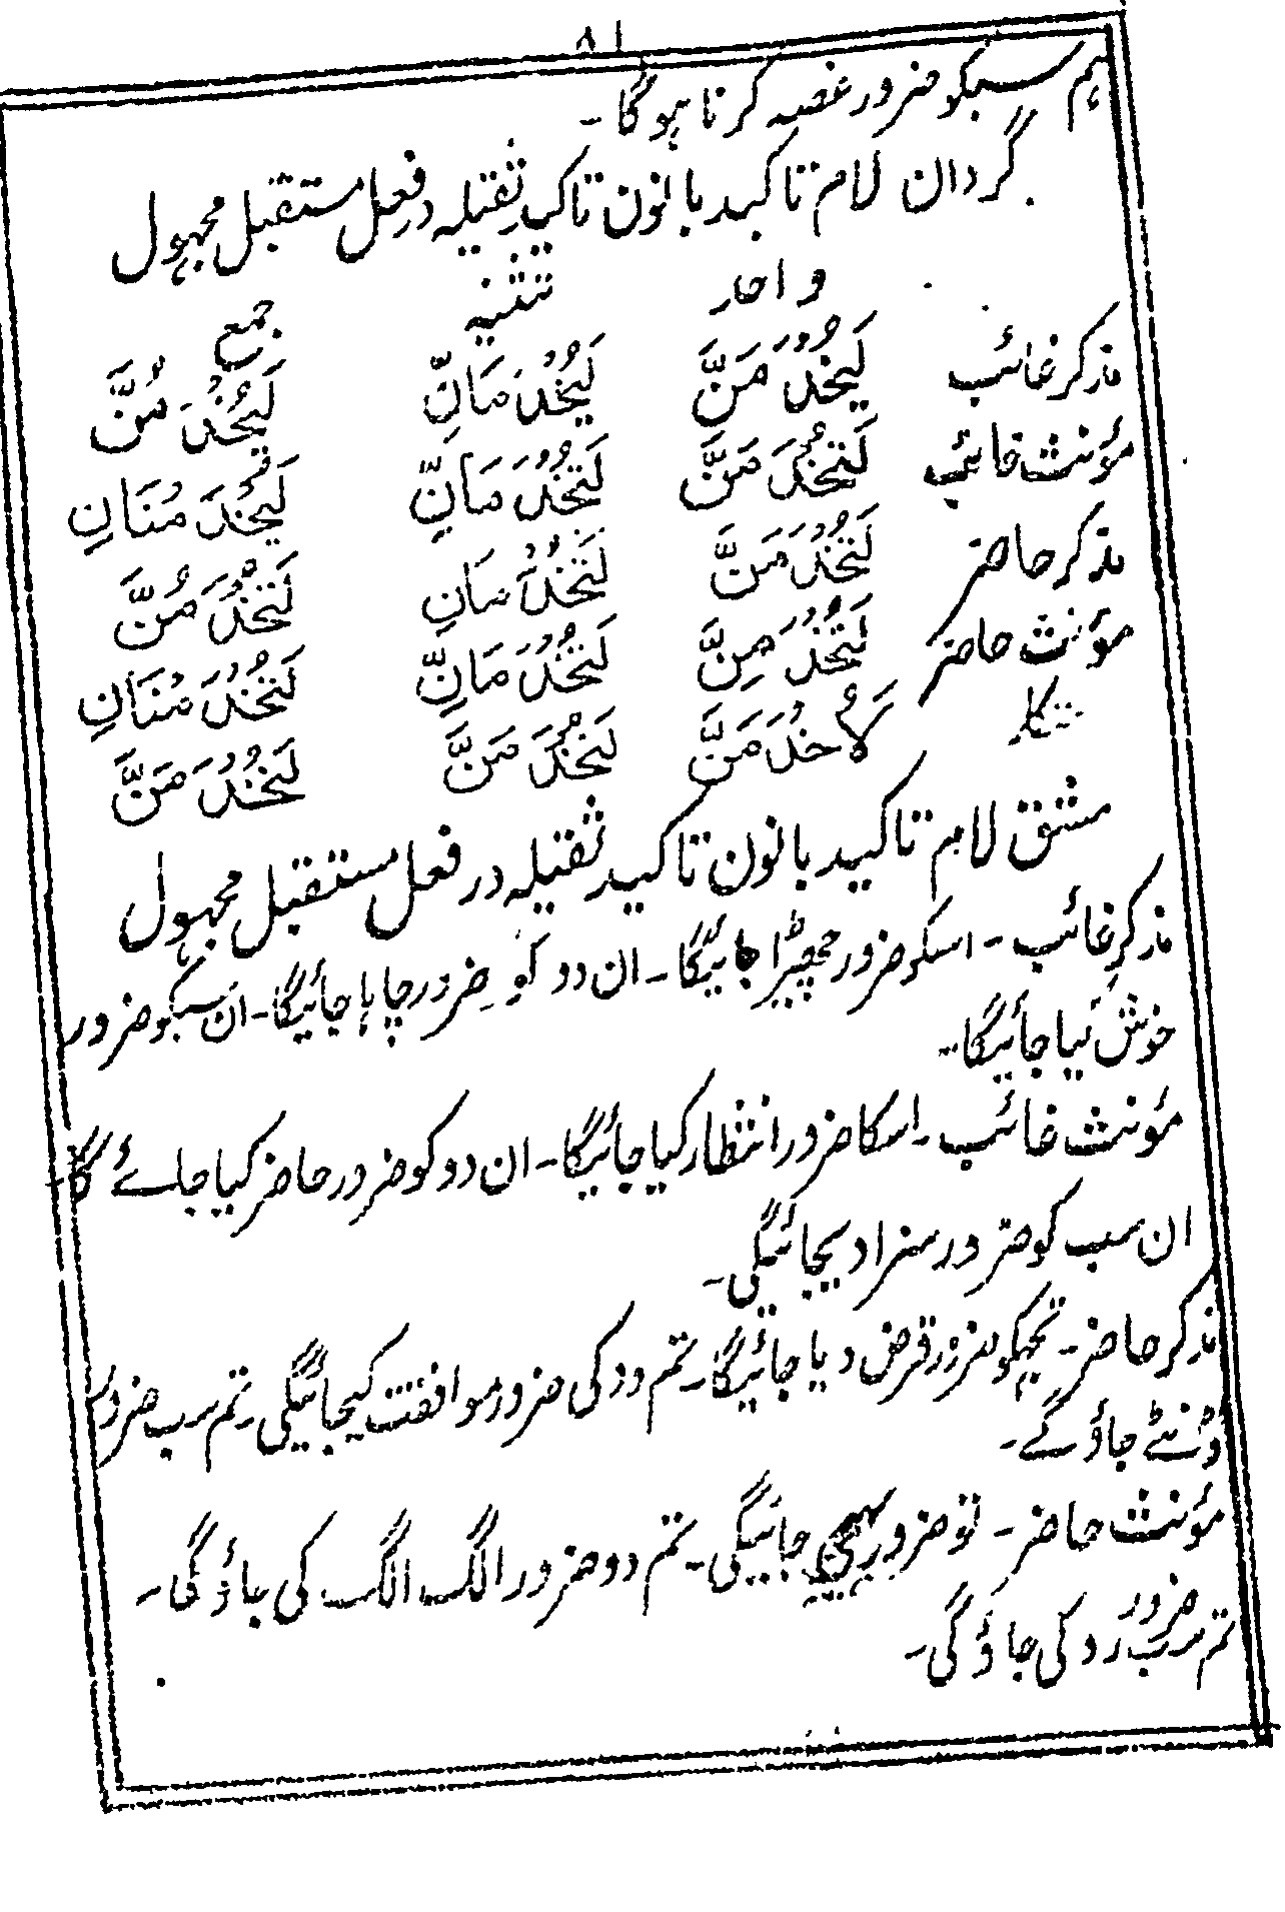 ۸۱
ہم سبکو ضرور غصہ کرنا ہوگا ۔
گردان لام تاکید با نون تاکید ثقیلہ در فعل مستقبل مجہول
واحد تثنیہ جمع
مذکر غائب لَيُخْدَمَنَّ لَيُخْدَمَانِّ لَيُخْدَمُنَّ
مؤنث غائب لَتُخْدَمَنَّ لَتُخْدَمَانِّ لَيُخْدَمْنَانِ
مذکر حاضر لَتُخْدَمَنَّ لَتُخْدَمَانِ لَتُخْدَمُنَّ
مؤنث حاضر لَتُخْدَمِنَّ لَتُخْدَمَانِّ لَتُخْدَمْنَانِ
متکلم لَأُخْدَمَنَّ لَنُخْدَمَنَّ لَنُخْدَمَنَّ
مشق لام تاکید با نون تاکید ثقیلہ در فعل مستقبل مجہول
مذکر غائب ۔ اسکو ضرور چھیڑا جائیگا ۔ ان دو کو ضرور چاہا جائیگا ۔ ان سبکو ضرور
خوش کیا جائیگا ۔
مؤنث غائب ۔ اسکا ضرور انتظار کیا جائیگا ۔ ان دو کو ضرور حاضر کیا جائے گا ۔
ان سب کو ضرور سزا دیجائیگی ۔
مذکر حاضر ۔ تجہکو ضرور قرض دیا جائیگا ۔ تم دو کی ضرور موافقت کیجائیگی ۔ تم سب ضرور
ڈنٹے جاؤ گے ۔
مؤنث حاضر ۔ تو ضرور بھیجی جائیگی ۔ تم دو ضرور الگ الگ کی جاؤ گی ۔
تم سب ضرور رد کی جاؤ گی ۔